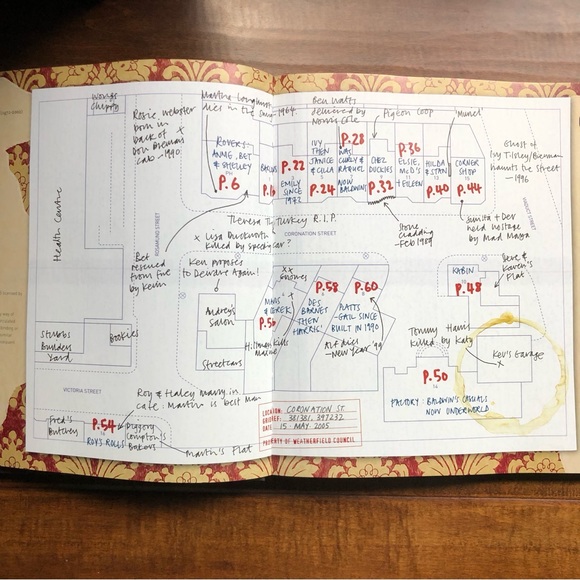 Wong's
Chippy
Rosie Webster
born in
back of
Don Brennan's
cab - 1990.
Martha Longhurst
dies in the Snug 1964
Ben Watts
delivered by
Norris Cole
Pigeon coop
'Muriel'
Ghost of
Ivy Tilsley/Brennan
haunts the Street
- 1996
ROVERS
ANNIE, BET
& SHELLEY
P.6
BARLOWS
P.16
P.22
EMILY SINCE
IVY
THEN
JANICE
& CILLA
P.24
P.28
WAS
CURLY &
RAQUEL
NOW
BALDWINS
CHEZ
DUCKIES
P.32
P.36
ELSIE,
McD'S
+ EILEEN
HILDA
& STAN
P.40
CORNER
SHOP
P.44
Health Centre
ROSAMUND STREET
VISCOUNT STREET
Theresa the Turkey R.I.P.
CORONATION STREET
x Lisa Duckworth
killed by speeding car?
Stone
cladding
- Feb 1989
Sunita + Dev
held hostage
by Mad Maya
Bet
rescued
from fire
by Kevin
Ken proposes
to Deirdre Again!
Dev &
Karen's
Flat
KABIN
P.48
Audrey's
Salon
Gnomes
MAVIS
& DEREK
P.56
P.58
DES
BARNES
THEN
HARRIS'
P.60
PLATTS
- GAIL SINCE
BUILT IN 1990
Alf dies
- New Year '99
Tommy Harris
killed by Katy
Kev's Garage
Stubbs
Builders
Yard
Bookies
Streetcars
P.50
FACTORY: BALDWIN'S CASUALS
NOW UNDERWORLD
VICTORIA STREET
Roy & Hayley Marry in
Cafe. Martin is best Man
Fred's
Butchers
P.54
ROY'S ROLLS
Diggory
Compton's
Bakery
Martin's Flat
LOCATION: CORONATION ST.
GRID REF: 381381, 397232
DATE: 15 MAY 2005
PROPERTY OF WEATHERFIELD COUNCIL